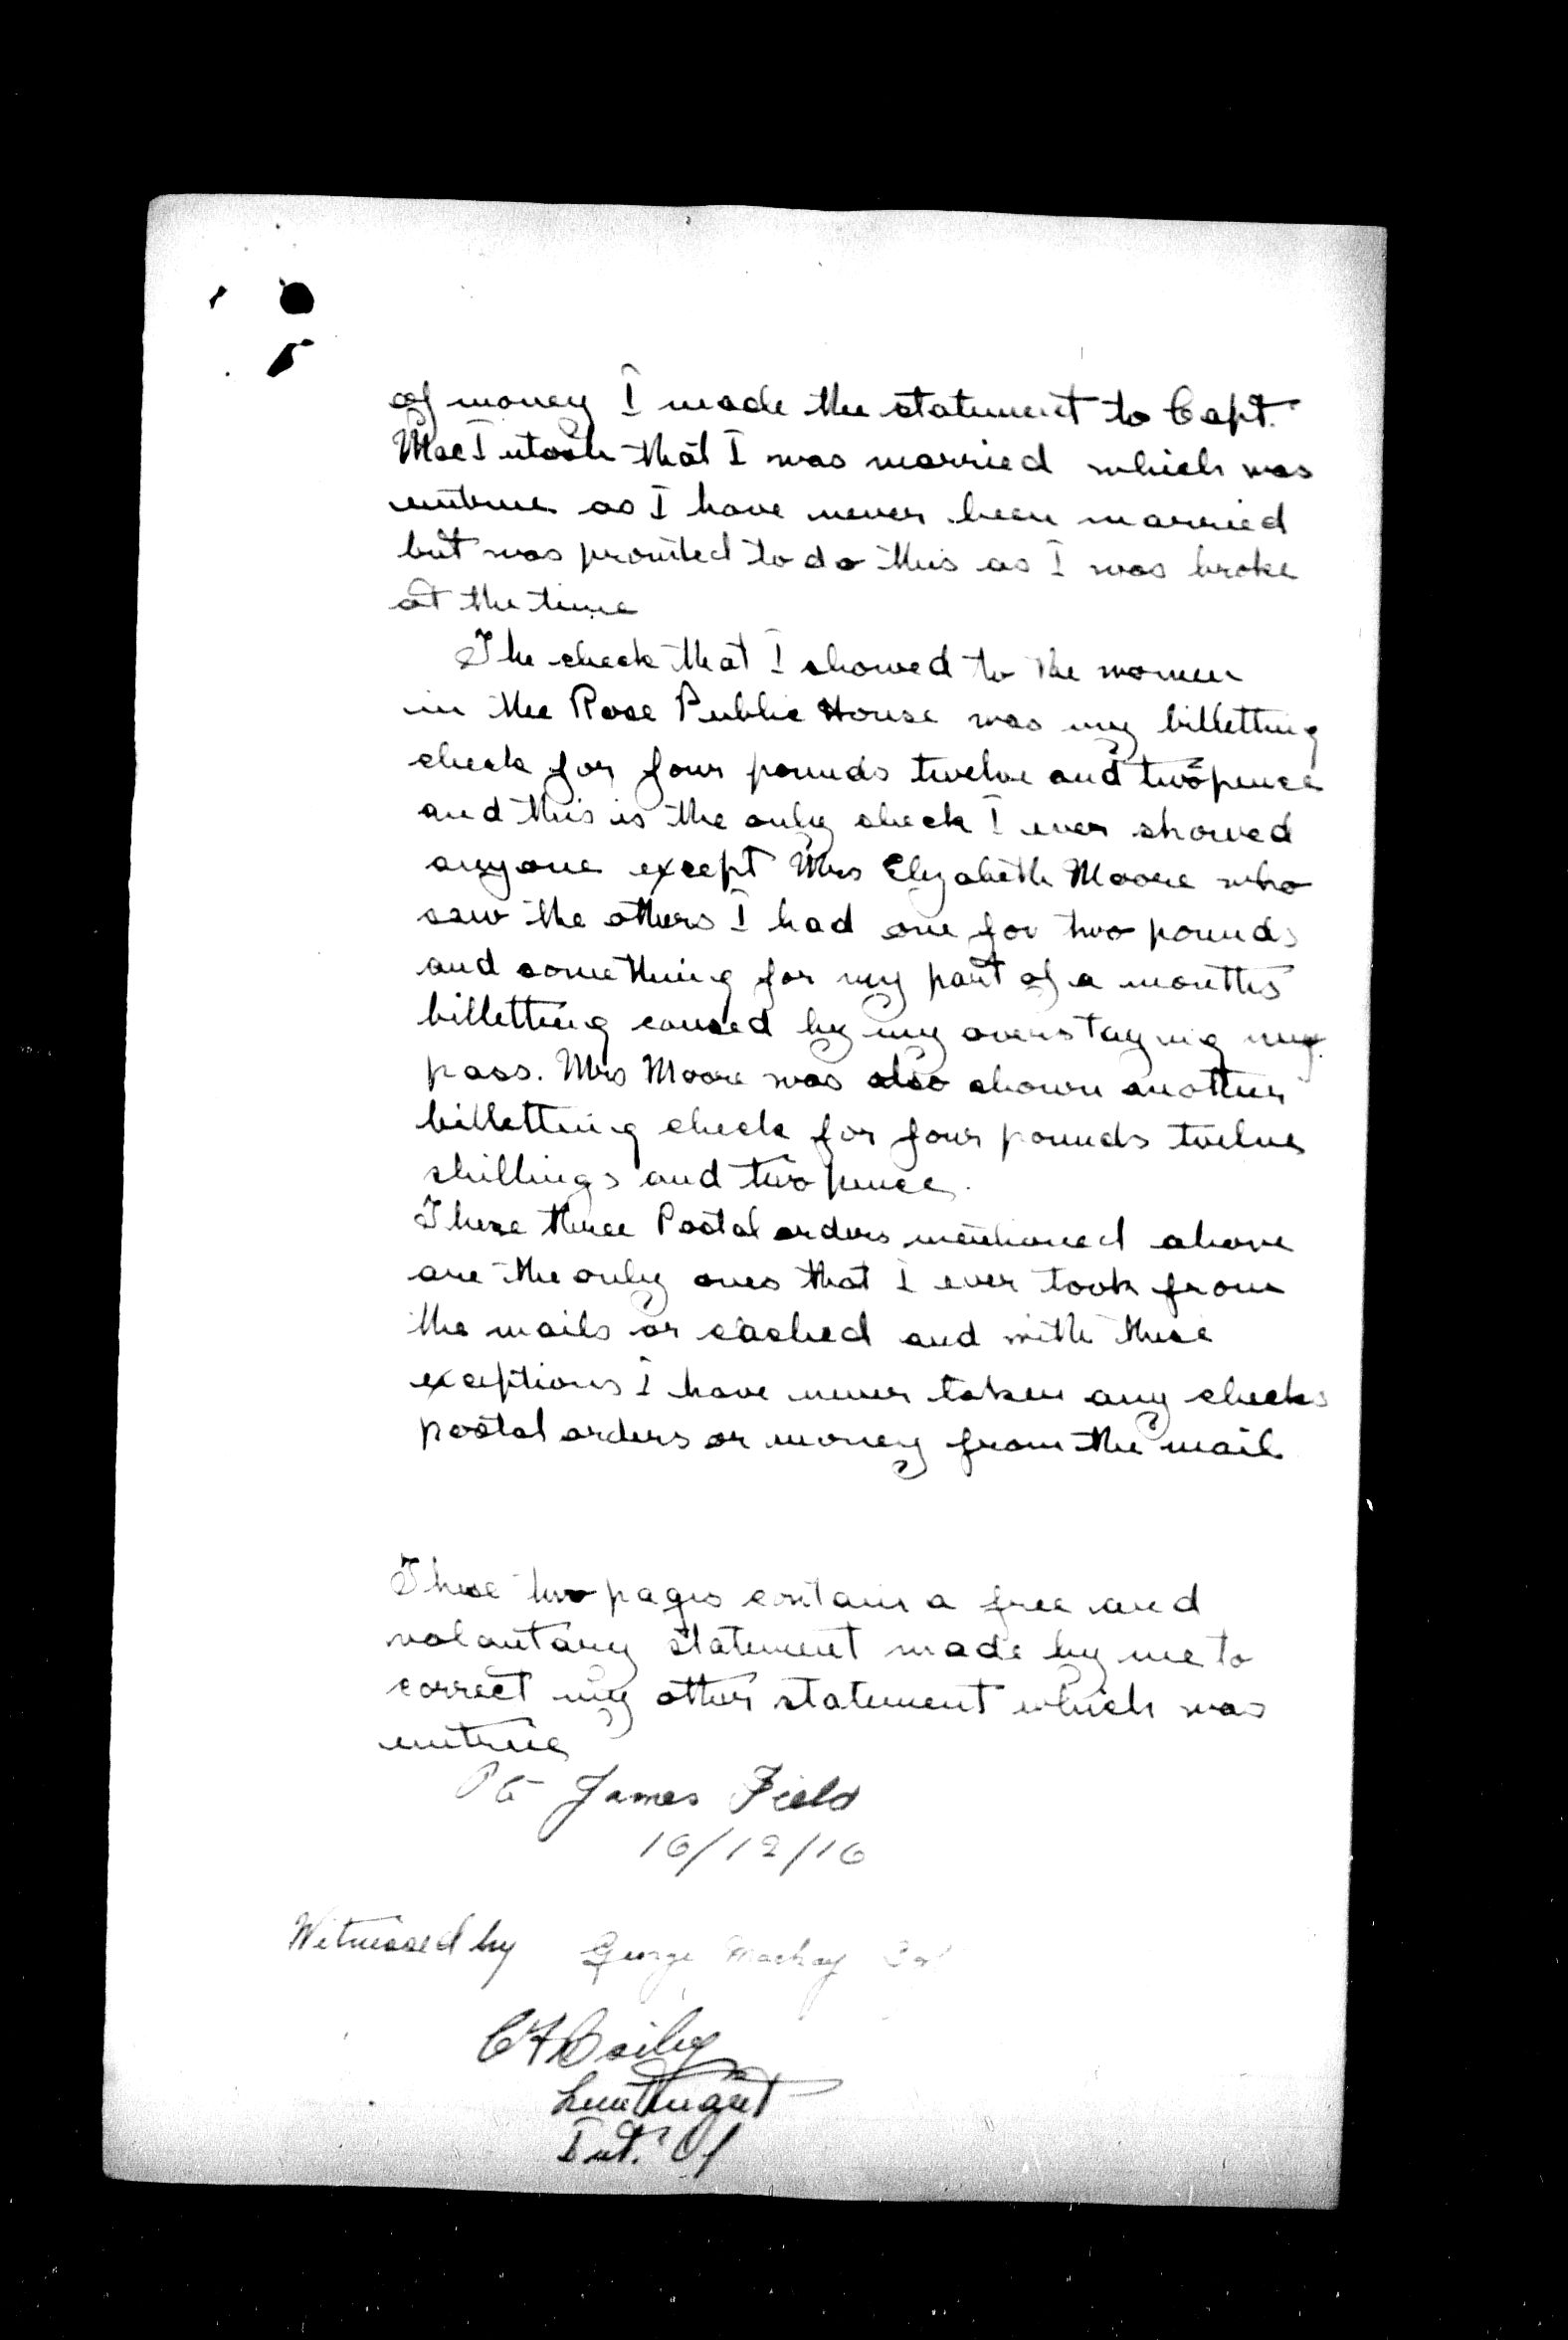 of money I made the statement to Capt.
MacIntosh that I was married which was
untrue as I have never been married
but was promted to do this as I was broke
at the time
The check that I showed to the women
in the Rose Public House was my billetting
check for four pounds twelve and twopence
and this is the only check I ever showed
anyone except Mrs Elizabeth Moore who
saw the others I had one for two pounds
and something for my part of a months
billetting caused by my overstaying my
pass. Mrs Moore was also shown another
billetting check for four pounds twelve
shillings and two pence.
These three Postal orders mentioned above
are the only ones that I ever took from
the mails or cashed and with these
exceptions I have never taken any checks
postal orders or money from the mail
These two pages contain a free and
voluntary statement made by me to
correct my other statement which was
untrue
Pte James Field
16/12/16
Witnessed by George Mackay
Int.